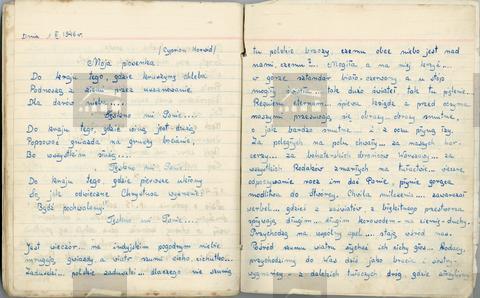 Dnia 1 X 1946 r.
(Cyprian Norwid)
Moja piosenka.
Do kraju tego, gdzie kruszynę chleba
Podnoszą z ziemi przez uszanowanie
Dla darów nieba....
Tęskno mi Panie....
Do kraju tego, gdzie winą jest dużą
Popsować gniazdo na gruszy bocianie,
Bo wszystkim służą....
Tęskno mi Panie....
Do kraju tego, gdzie pierwsze ukłony
Są jak odwieczne Chrystusa wyznanie:
Bądź pochwalony!
Tęskno mi Panie....
Jest wieczór... na indyjskim pogodnym niebie
mrugają gwiazdy a wiatr szumi cicho, cichutko...
Zaduszki... polskie zaduszki... dlaczego nie szumią
tu polskie brzozy, czemu obce niebo jest nad
nami, czemu?... Mogiła a na niej krzyż...
w górze sztandar biało-czerwony a u stóp
mogiły światła... tak dużo świateł tak tu pięknie...
Requiem eternam... śpiewa ksiądz a przed oczyma
naszymi przesuwają się obrazy, obrazy smutne,
o jak bardzo smutne... i z oczu płyną łzy.
Za poległych na polu chwały... za naszych har-
cerzy... za bohaterskich obrońców Warszawy... za
wszystkich Rodaków zmarłych na tułactwie... wieczne
odpoczywanie racz im dać Panie, płynie gorąca
modlitwa do Stwórcy. Chwila milczenia... zawarczał
werbel... gdzieś z zaświatów, z błękitnego przestworza
spływają długim, długim korowodem na ziemię duchy.
Przychodzą na wspólny apel... stają wśród nas.
Pośród szumu wiatru słychać ich cichy głos... Rodacy,
przychodzimy do Was dziś jako bracia i siostry,
wygnańcy z dalekich tułaczych dróg, gdzie